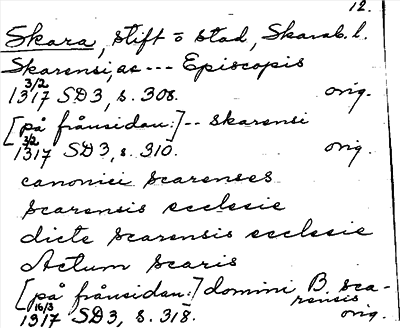 12.
Skara, stift o stad, Skarab. l.
Skarensi, as --- Episcopis
3/2
1317 SD 3, s. 308. orig.
[på frånsidan:] -- skarensi
3/2
1317 SD 3, s. 310. orig.
canonici scarenses
scarensis ecclesie
dicte scarensis ecclesie
Actum scaris
[på frånsidan:] domini B. sca-
rensis
16/3
1317 SD 3, s. 318. orig.